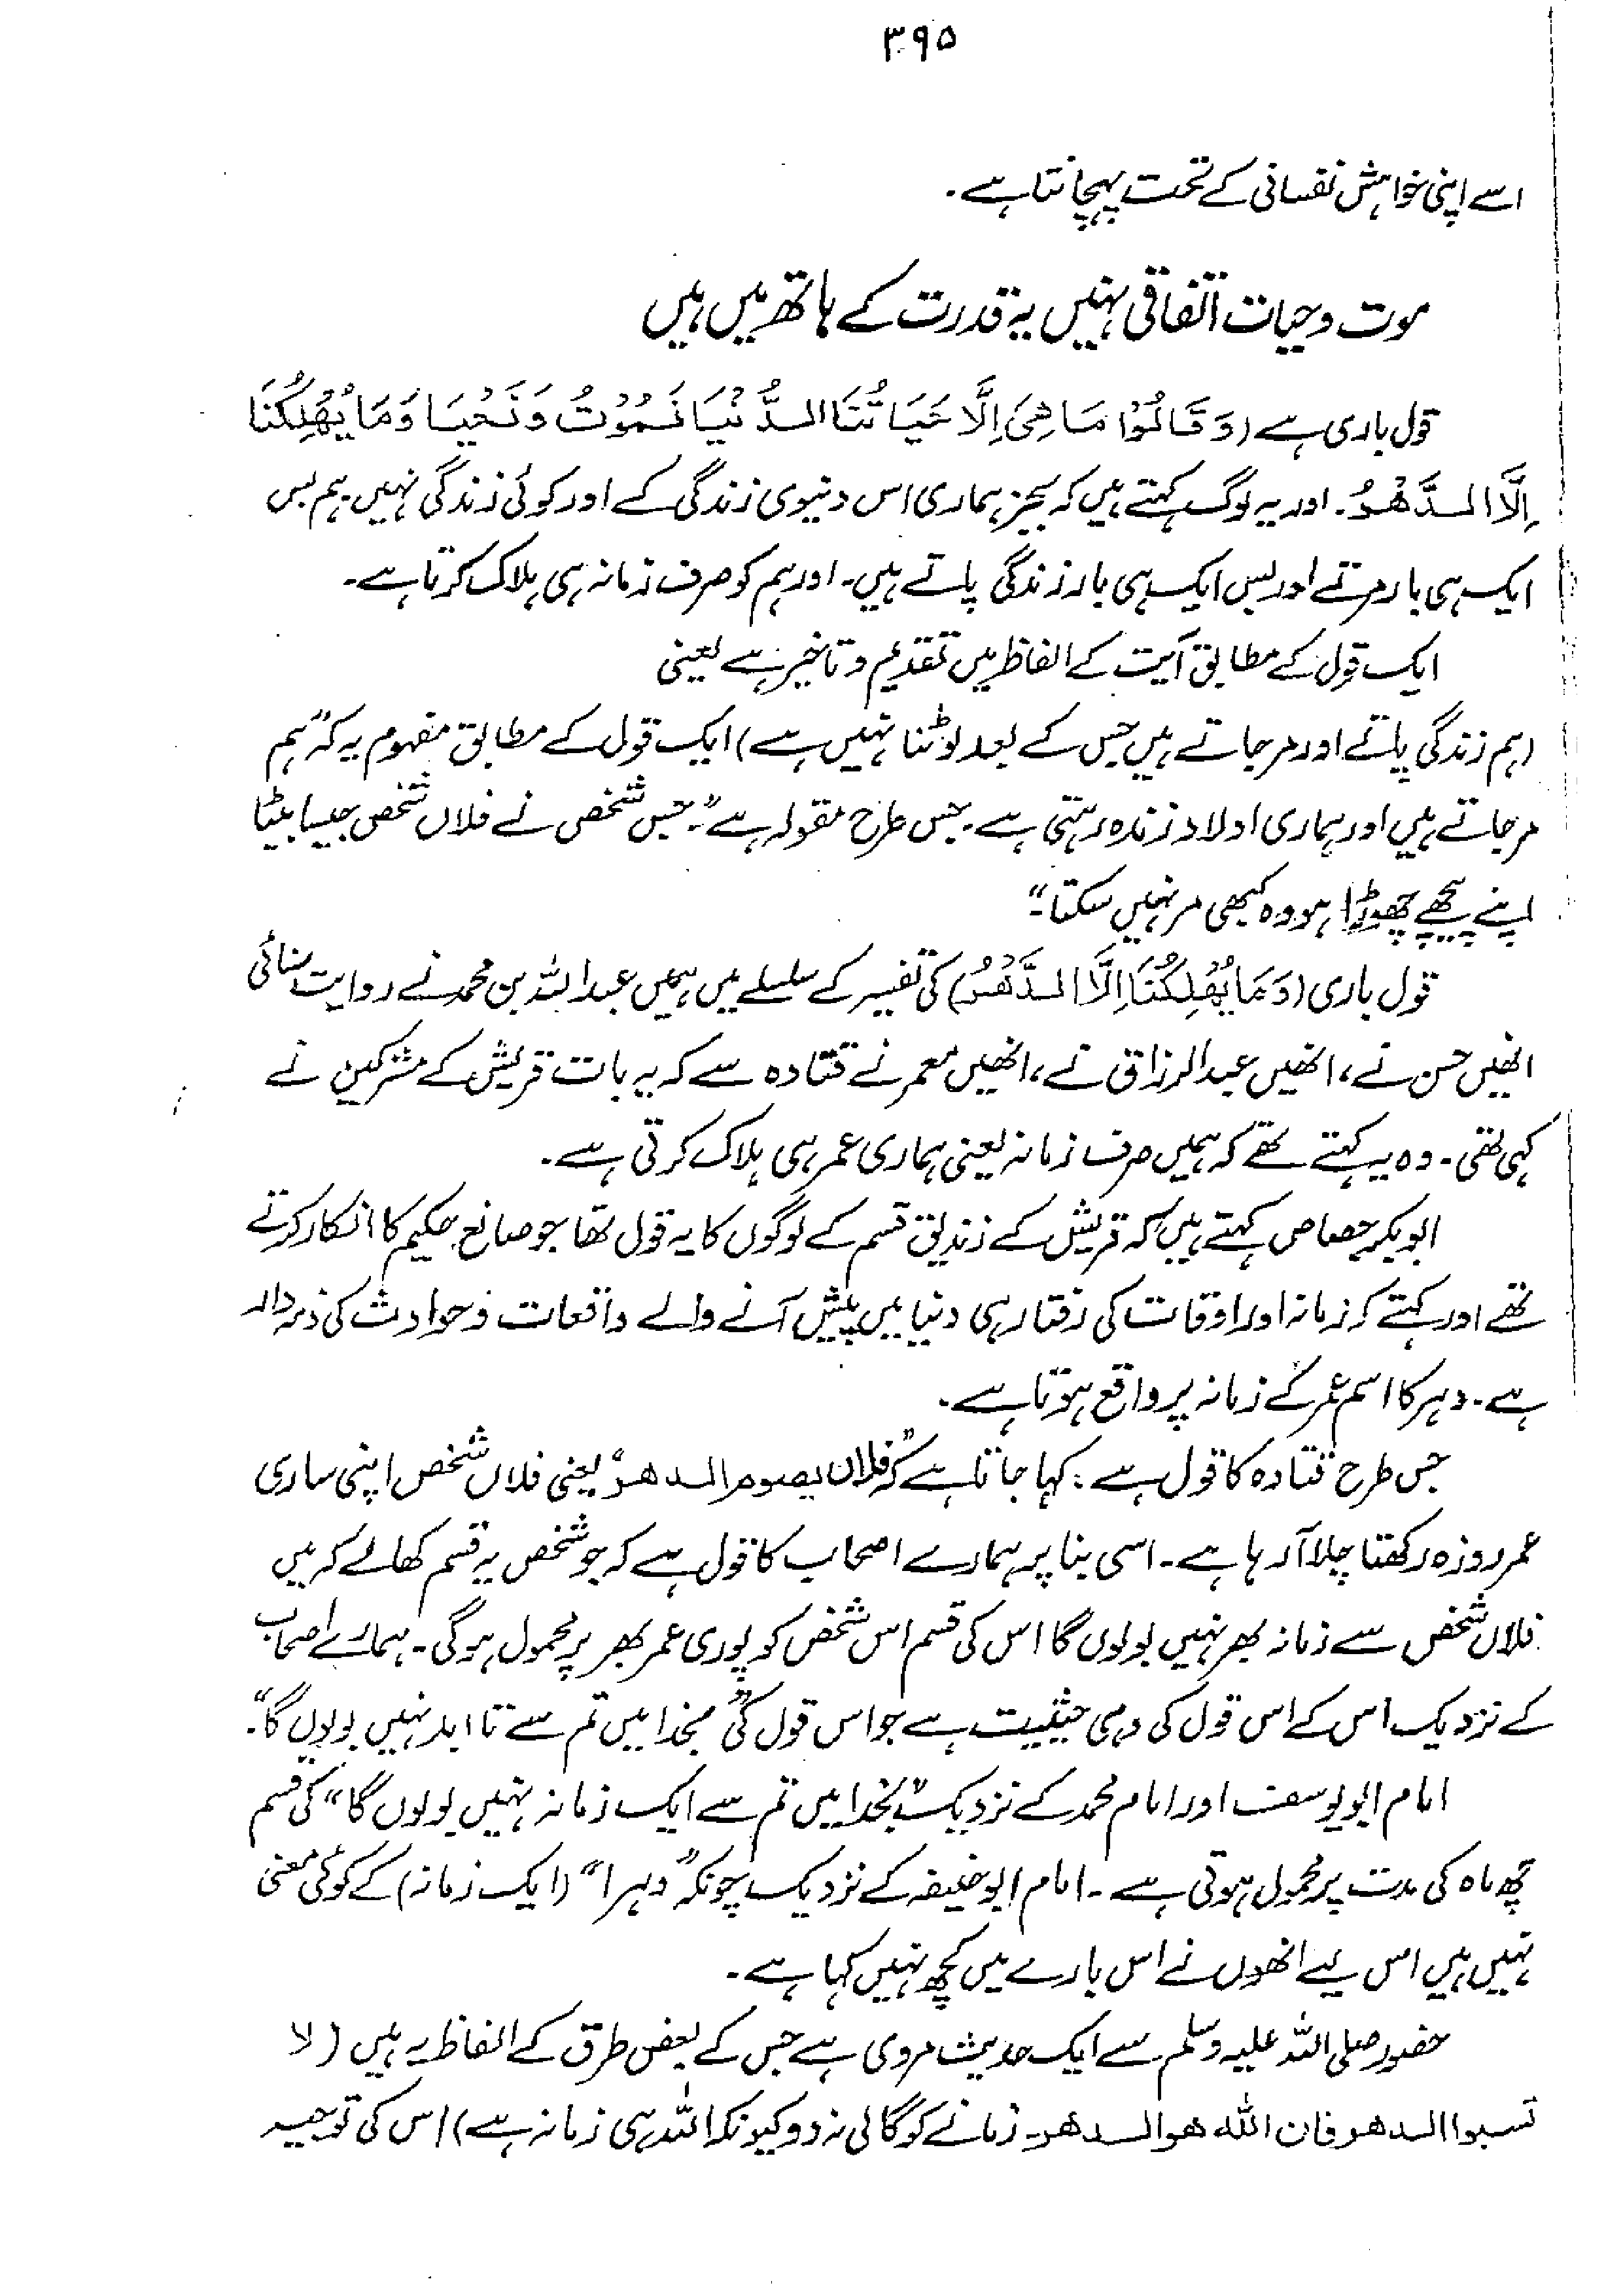 ۳۹۵
اسے اپنی خواہش نفسانی کے تحت پہچانتا ہے۔
موت وحیات اتفاقی نہیں یہ قدرت کے ہاتھ میں ہیں
قول باری ہے (وَقَالُوْا مَا هِيَ اِلَّا حَيَاتُنَا الدُّنْيَا نَمُوْتُ وَنَحْيَا وَمَا يُهْلِكُنَا
اِلَّا الدَّهْرُ۔ اور یہ لوگ کہتے ہیں کہ بجز ہماری اس دنیوی زندگی کے اور کوئی زندگی نہیں۔ ہم بس
ایک ہی بار مرتے اور بس ایک ہی بار زندگی پاتے ہیں۔ اور ہم کو صرف زمانہ ہی ہلاک کرتا ہے۔
ایک قول کے مطابق آیت کے الفاظ میں تقدیم وتاخیر ہے یعنی
(ہم زندگی پاتے اور مرجاتے ہیں جس کے بعد لوٹنا نہیں ہے) ایک قول کے مطابق مفہوم یہ کہ "ہم
مرجاتے ہیں اور ہماری اولاد زندہ رہتی ہے۔ جس طرح مقولہ ہے "۔ جس شخص نے فلاں شخص جیسا بیٹا
اپنے پیچھے چھوڑا ہو وہ کبھی مر نہیں سکتا۔"
قول باری (وَمَا يُهْلِكُنَا اِلَّا الدَّهْرُ) کی تفسیر کے سلسلے میں ہمیں عبداللہ بن محمد نے روایت سنائی
انھیں حسن نے، انھیں عبدالرزاق نے، انھیں معمر نے قتادہ سے کہ یہ بات قریش کے مشرکین نے
کہی تھی۔ وہ یہ کہتے تھے کہ ہمیں صرف زمانہ یعنی ہماری عمر ہی ہلاک کرتی ہے۔
ابوبکر جصاص کہتے ہیں کہ قریش کے زندیق قسم کے لوگوں کا یہ قول تھا جو صانع حکیم کا انکار کرتے
تھے اور کہتے کہ زمانہ اور اوقات کی رفتار ہی دنیا میں پیش آنے والے واقعات وحوادث کی ذمہ دار
ہے۔ دہر کا اسم عمر کے زمانہ پر واقع ہوتا ہے۔
جس طرح قتادہ کا قول ہے: کہا جاتا ہے کہ "فلان یصوم الدھر" یعنی فلاں شخص اپنی ساری
عمر روزہ رکھتا چلا آرہا ہے۔ اسی بنا پر ہمارے اصحاب کا قول ہے کہ جو شخص یہ قسم کھالے کہ میں
فلاں شخص سے زمانہ بھر نہیں بولوں گا اس کی قسم اس شخص کو پوری عمر بھر پر محمول ہوگی۔ ہمارے اصحاب
کے نزدیک اس کے اس قول کی وہی حیثیت ہے جو اس قول کی "بخدا میں تم سے تا ابد نہیں بولوں گا"۔
امام ابویوسف اور امام محمد کے نزدیک "بخدا میں تم سے ایک زمانہ نہیں بولوں گا" کی قسم
چھ ماہ کی مدت پر محمول ہوتی ہے۔ امام ابوحنیفہ کے نزدیک چونکہ "دہرا" (ایک زمانہ) کے کوئی معنی
نہیں ہیں اس لیے انھوں نے اس بارے میں کچھ نہیں کہا ہے۔
حضور صلی اللہ علیہ وسلم سے ایک حدیث مروی ہے جس کے بعض طرق کے الفاظ یہ ہیں (لا
تسبوا الدھر فان اللہ ھو الدھر۔ زمانے کو گالی نہ دو کیونکہ اللہ ہی زمانہ ہے) اس کی توجیہ